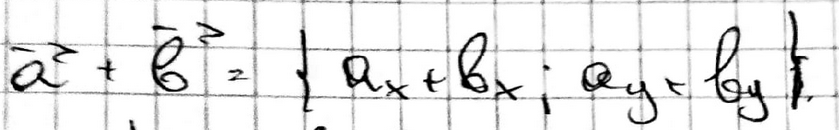 $\vec{a} + \vec{b} = \{ a_x + b_x ; a_y + b_y \}.$